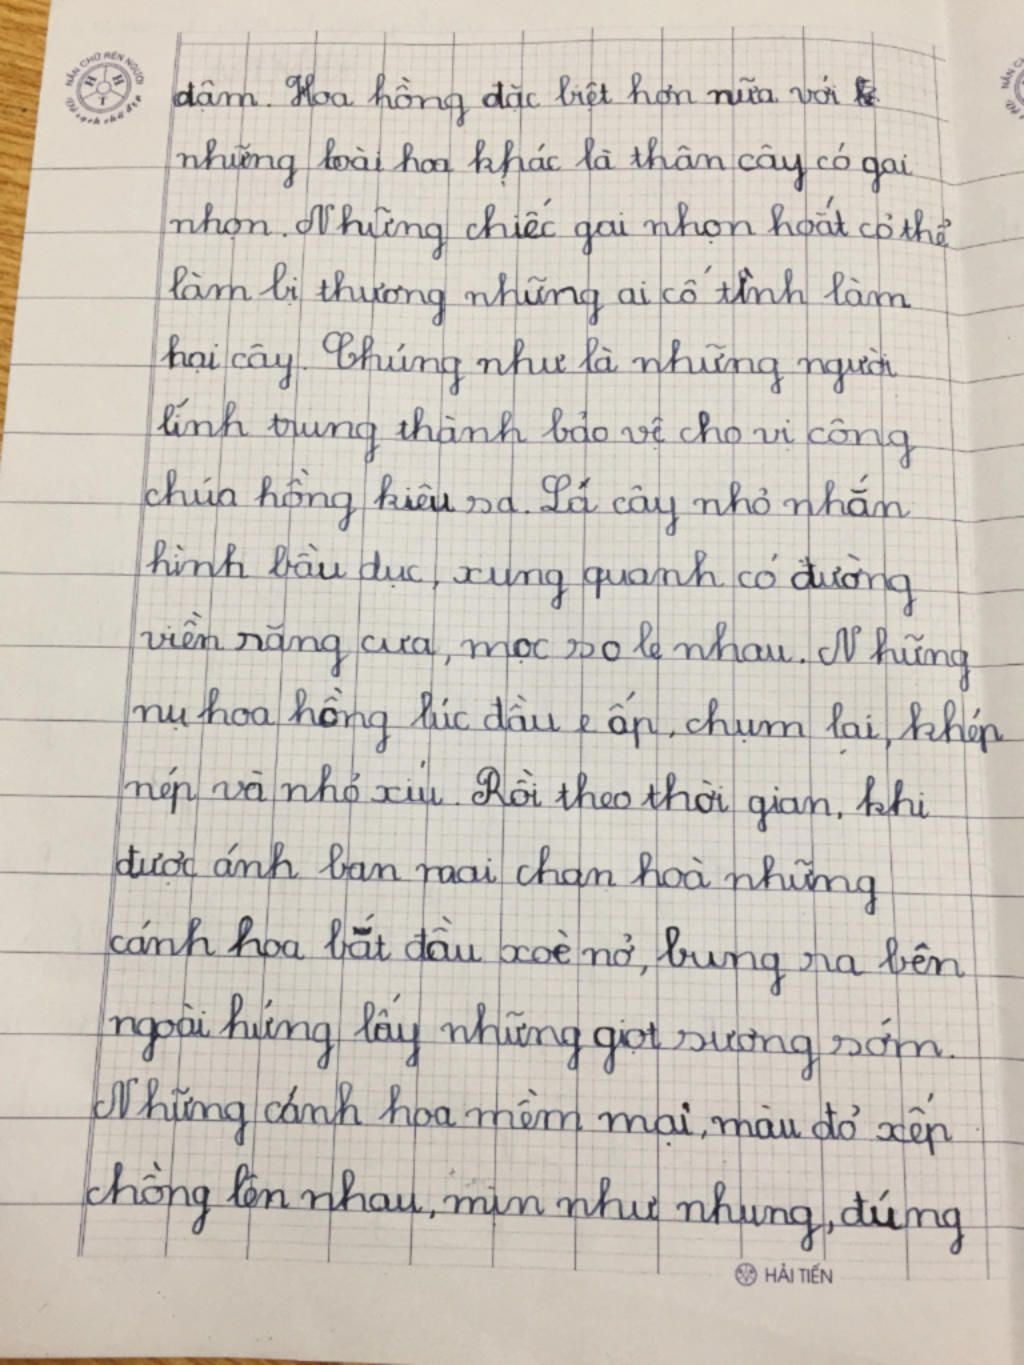 NẮN CHỮ RÈN NGƯỜI
dậm. Hoa hồng đặc biệt hơn nữa với
những loài hoa khác là thân cây có gai
nhọn. Những chiếc gai nhọn hoắt có thể
làm bị thương những ai cố tình làm
hại cây. Chúng như là những người
lính trung thành bảo vệ cho vị công
chúa hồng kiêu sa. Lá cây nhỏ nhắn
hình bầu dục, xung quanh có đường
viền răng cưa, mọc so le nhau. Những
nụ hoa hồng lúc đầu e ấp, chụm lại, khép
nép và nhỏ xíu. Rồi theo thời gian, khi
được ánh ban mai chan hoà những
cánh hoa bắt đầu xoè nở, bung ra bên
ngoài hứng lấy những giọt sương sớm.
Những cánh hoa mềm mại, màu đỏ xếp
chồng lên nhau, mịn như nhung, đứng
HẢI TIẾN